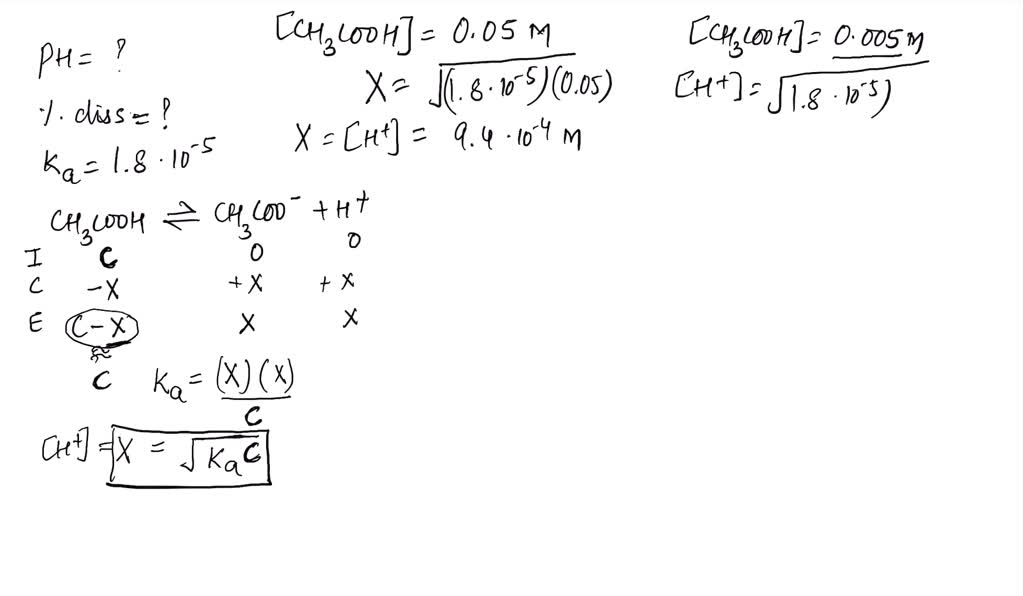 PH = ?
% diss = ?
Ka = 1.8 · 10^-5
CH3COOH ⇌ CH3COO^- + H^+
I C 0 0
C -X +X +X
E C-X X X
≈
C Ka = (X)(X) / C
[H^+] = X = √Ka C
[CH3COOH] = 0.05 M
X = √(1.8 · 10^-5)(0.05)
X = [H^+] = 9.4 · 10^-4 M
[CH3COOH] = 0.005 M
[H^+] = √1.8 · 10^-5)